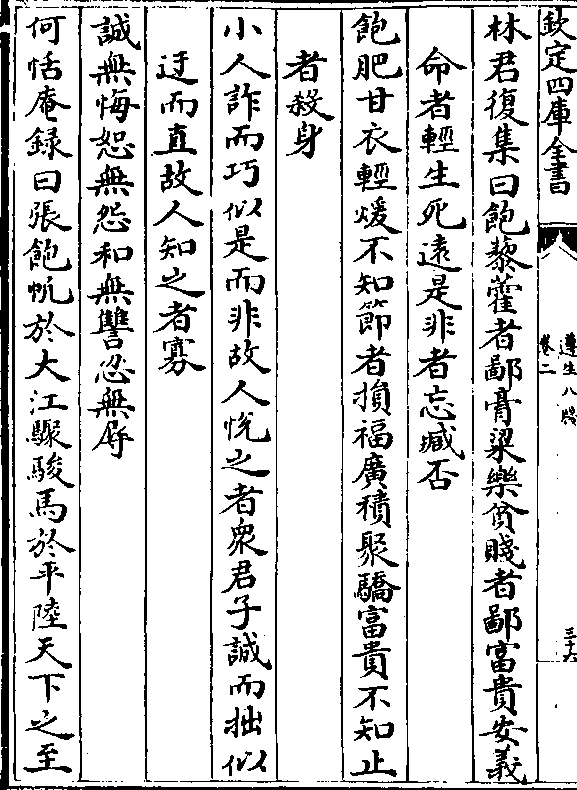 欽定四庫全書
遵生八牋
卷二
三十六
林君復集曰飽藜藿者鄙膏粱樂貧賤者鄙富貴安義
命者輕生死遠是非者忘臧否
飽肥甘衣輕煖不知節者損福廣積聚驕富貴不知止
者殺身
小人詐而巧似是而非故人悅之者衆君子誠而拙似
迂而直故人知之者寡
誠無悔恕無怨和無讐忍無辱
何恬庵録曰張飽帆於大江驟駿馬於平陸天下之至